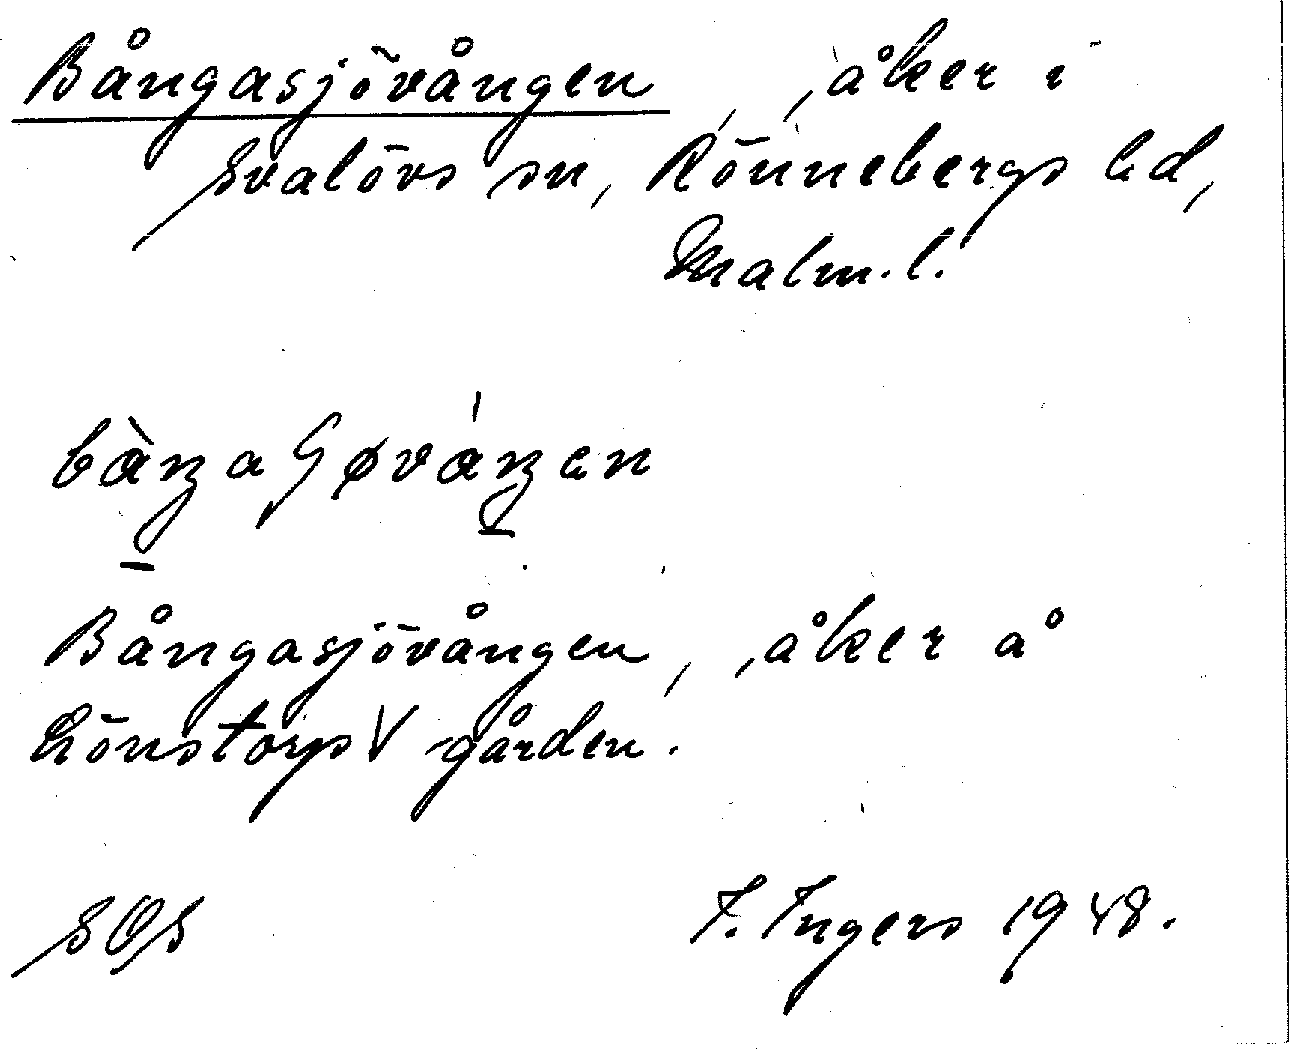 Bångasjövången, åker i
Svalövs sn, Rönnebergs hd,
Malm. l.
Bångasjövången, åker å
Lönstorps V gården.
SOS
I. Ingers 1948.